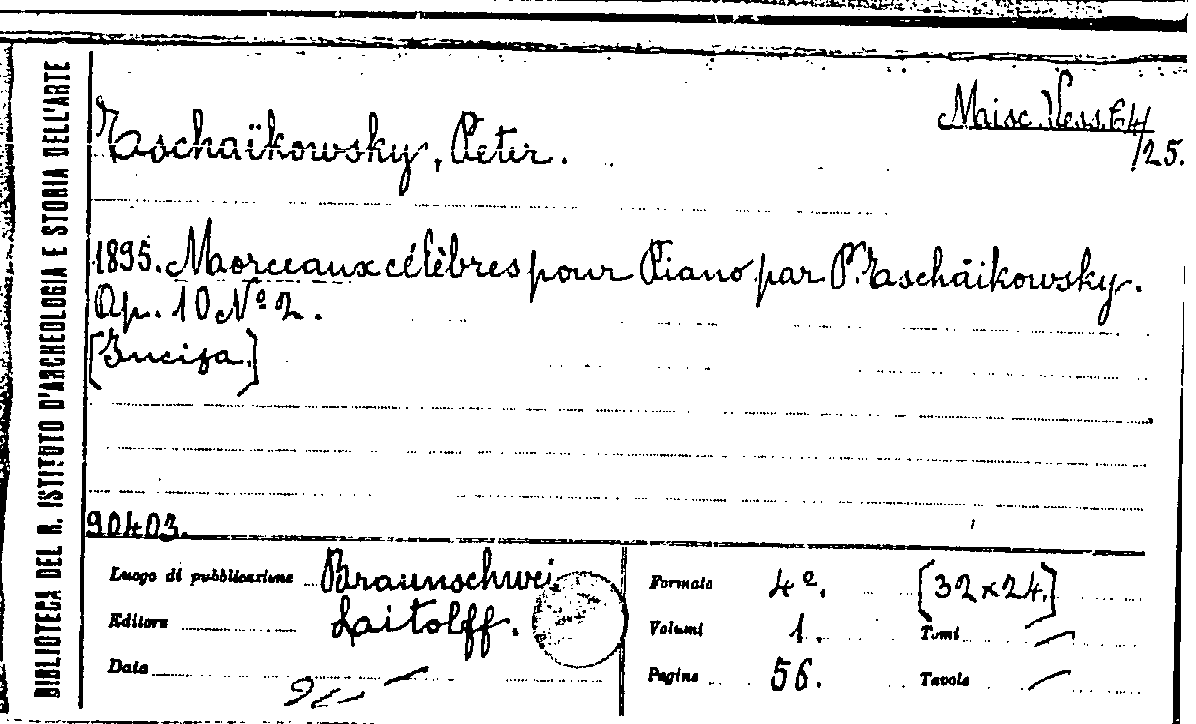 BIBLIOTECA DEL R. ISTITUTO D'ARCHEOLOGIA E STORIA DELL'ARTE
Maisc. Vess. E4/
/25.
Taschaïkowsky, Peter.
1895. Maorceaux célèbres pour Piano par P. Taschäikowsky.
Op. 10 Nº 2.
[Incisa.]
90403.
Luogo di pubblicazione Braunschwei
Editore Laitolff.
Data
Formato 4º. [32x24.]
Volumi 1. Tomi —
Pagine 56. Tavole —